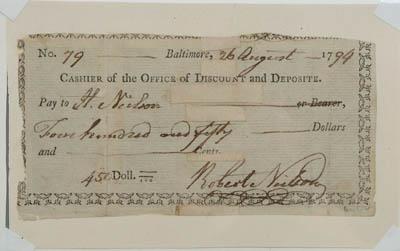 No. 79 Baltimore, 26 August 1794
CASHIER of the OFFICE of DISCOUNT and DEPOSITE.
Pay to H. Neilson or Bearer,
Four hundred and fifty Dollars
and Cents.
450 Doll. =/100
Robert Neilson